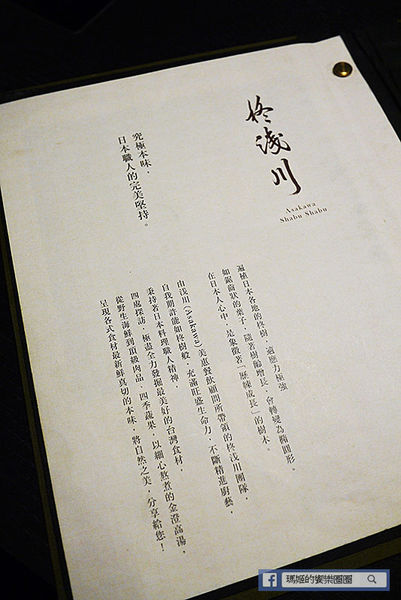 柊浅川
Asakawa
Shabu Shabu
究極本味．
日本職人的完美堅持。
遍植日本各地的柊樹，適應力極強，
如鋸齒狀的葉子，隨著樹齡增長，會轉變為橢圓形。
在日本人心中，是象徵者「歷練成長」的樹木。
由浅川(Asakawa)美惠餐飲顧問所帶領的柊浅川團隊，
自我期許能如柊樹般，充滿旺盛生命力，不斷精進廚藝，
秉持著日本料理職人精神，
四處探訪，極盡全力發掘最美好的台灣食材，
從野生海鮮到頂級肉品、四季蔬果，以細心熬煮的金澄高湯，
呈現各式食材最新鮮真切的本味，將自然之美，分享給您！
瑪姬的饗樂圈圈